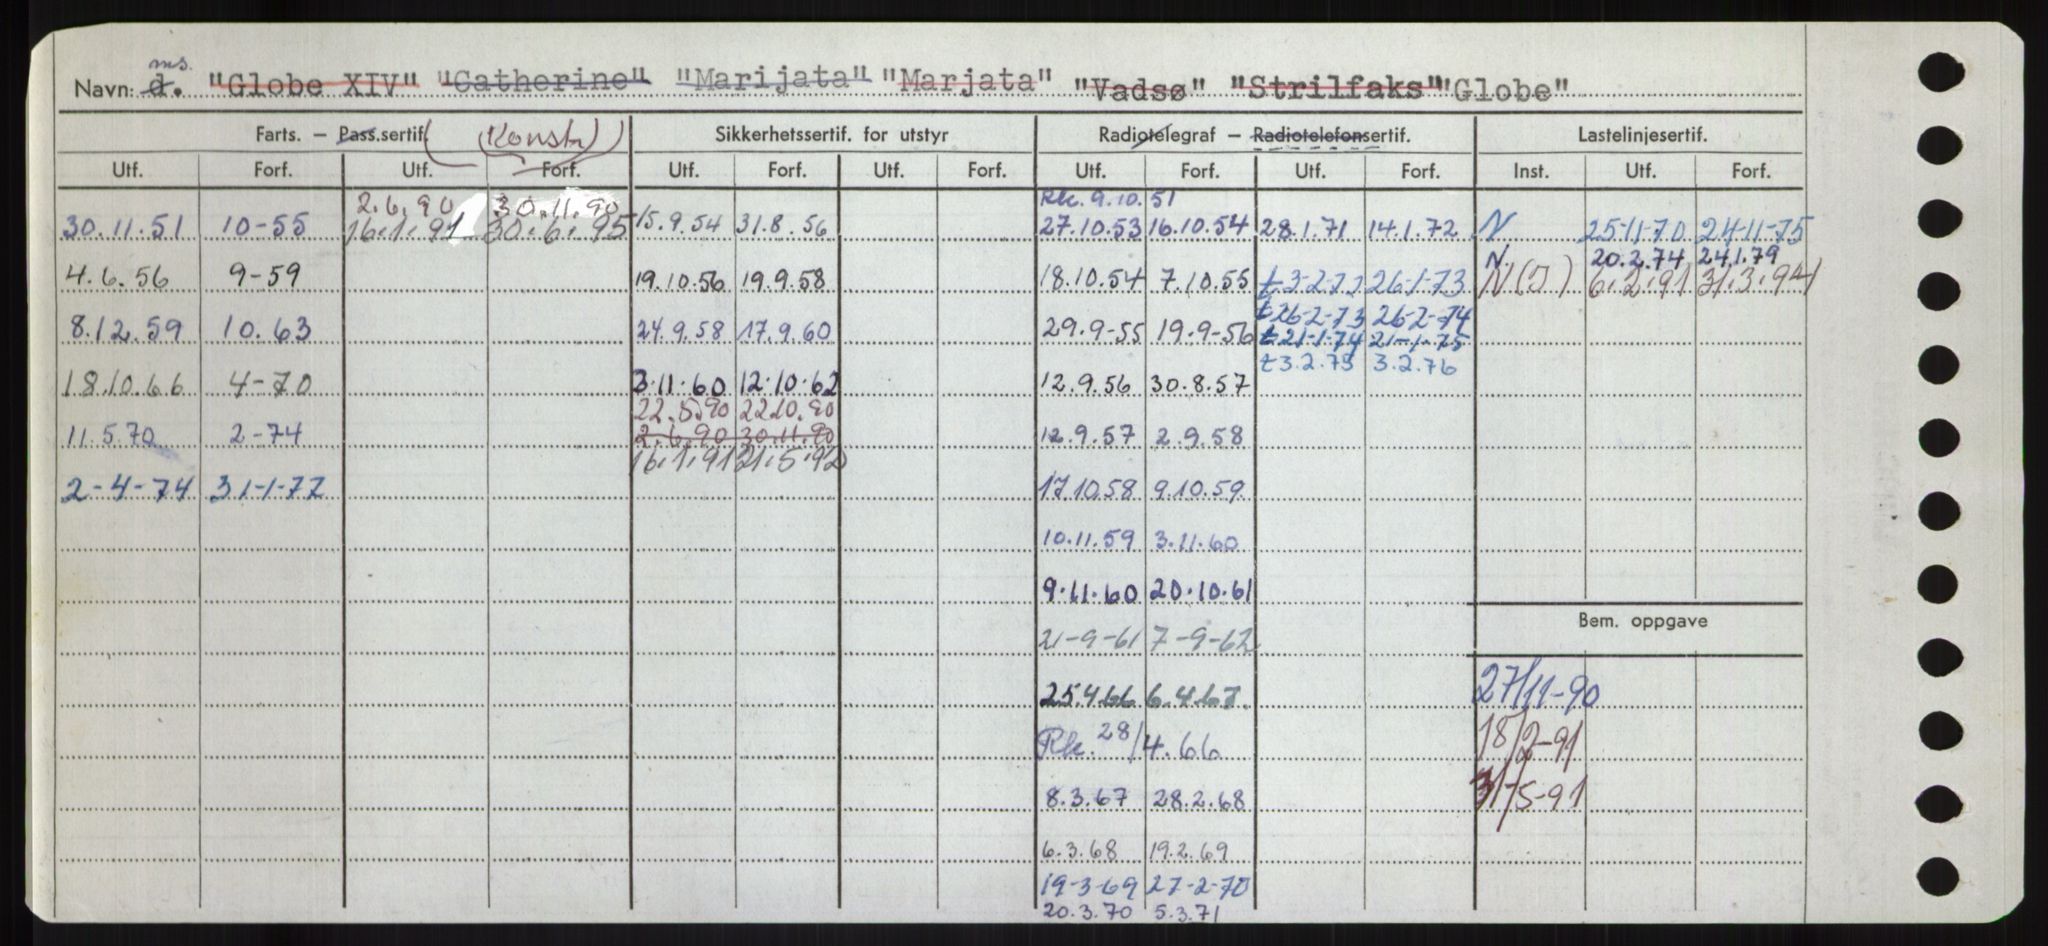 ms.
Navn: d. "Globe XIV" "Catherine" "Marijata" "Marjata" "Vadsø" "Strilfaks" "Globe"
Farts. – Pass.sertif. (Konstr) Sikkerhetssertif. for utstyr Radiotelegraf – Radiotelefonsertif. Lastelinjesertif.
Utf. Forf. Utf. Forf. Utf. Forf. Utf. Forf. Utf. Forf. Utf. Forf. Inst. Utf. Forf.
2.6.90 30.11.90 Rk. 9.10.51
30.11.51 10-55 16.1.91 30.6.95 15.9.54 31.8.56 27.10.53 16.10.54 28.1.71 14.1.72 N 25-11-70 24-11-75
N. 20.2.74 24.1.79
4.6.56 9-59 19.10.56 19.9.58 18.10.54 7.10.55 t 3-2-72 26-1-73 N(J) 6.2.91 31.3.94
t 26-2-73 26-2-74
8.12.59 10.63 24.9.58 17.9.60 29.9-55 19.9-56 t 21-1-74 21-1-75
t 3.2.75 3.2.76
18.10.66 4-70 3.11.60 12.10.62 12.9.56 30.8.57
22.5.90 22.10.90
11.5.70 2-74 2.6.90 30.11.90 12.9.57 2.9.58
16.1.91 31.5.92
2-4-74 31-1-77 17.10.58 9.10.59
10.11.59 3.11.60
9.11.60 20.10.61
Bem. oppgave
21-9-61 7-9-62
25.4.66 6.4.67. 27/11-90
Rk. 28/4.66 18/2-91
8.3.67 28.2.68 31/5-91
6.3.68 19.2.69
19-3-69 27-2-70
20.3.70 5.3.71